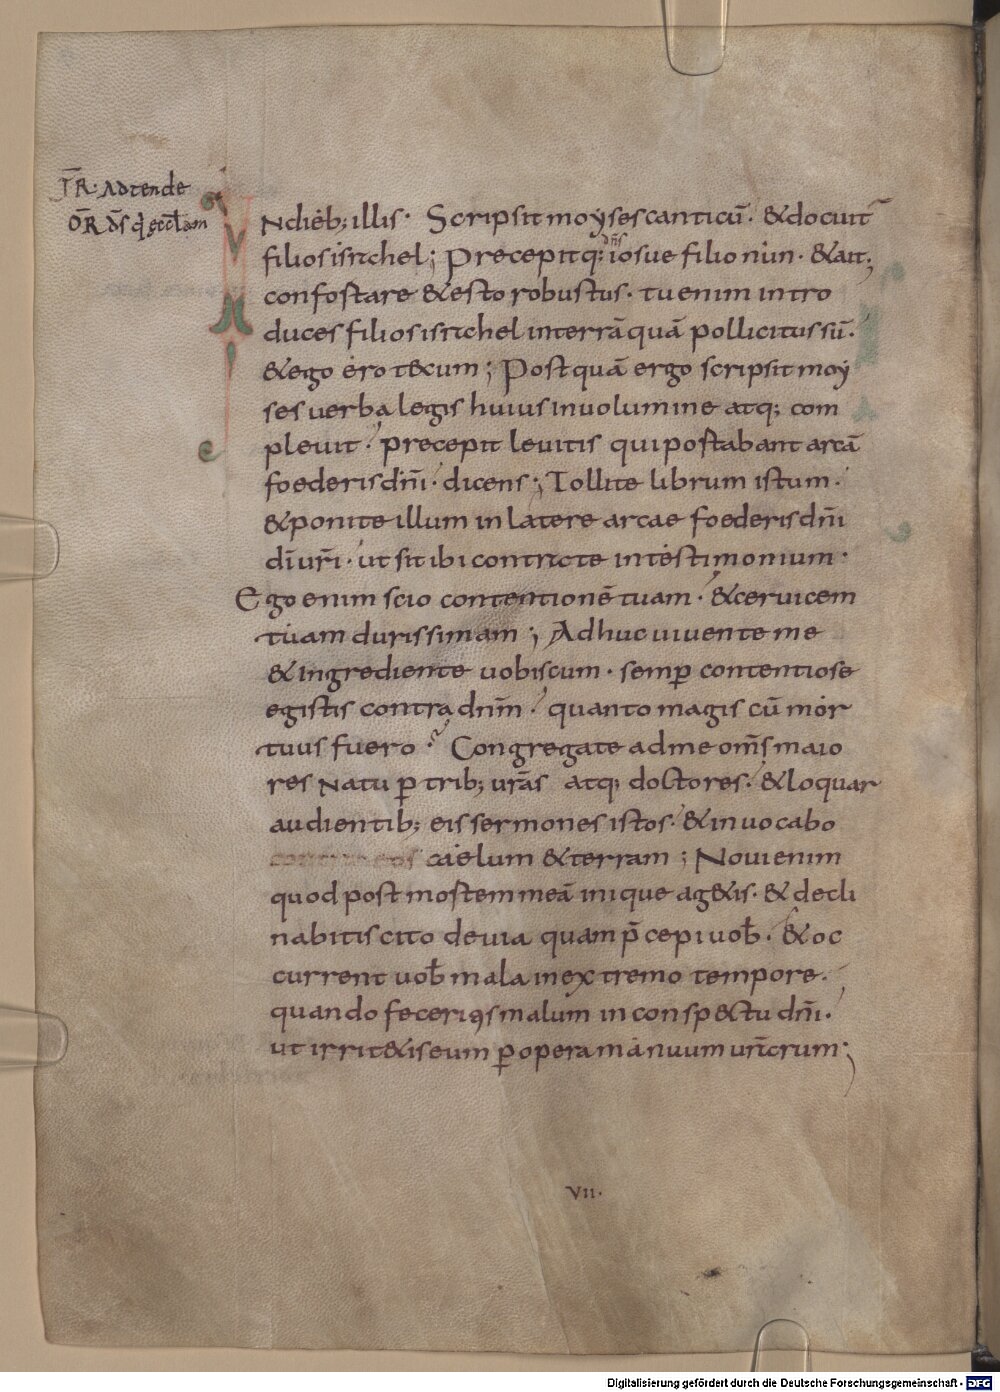 T̄R· Adtende
OR̄ Ds̄ q̄ eccl̄am
INdieb; illis· Scripsit moyses canticū· &docuit
filios isrł; Precepitq; dn̄s iosue filio nun· &ait;
confortare &esto robustus· tu enim intro
duces filios isrł in terrā quā pollicitus sū·
&ego ero tecum; Postquā ergo scripsit moy
ses uerba legis huius in uolumine atq; com
pleuit· precepit leuitis qui portabant arcā
foederis dn̄i· dicens; Tollite librum istum·
&ponite illum in latere arcae foederis dn̄i
dī ur̄i· ut sit ibi contra te in testimonium·
Ego enim scio contentionē tuam· &ceruicem
tuam durissimam; Adhuc uiuente me
&ingrediente uobiscum· semp̄ contentiose
egistis contra dn̄m· quanto magis cū mor
tuus fuero· Congregate ad me om̄s maio
res natu p̄ trib; urās atq; doctores· &loquar
audientib; eis sermones istos· &inuocabo
contra eos caelum &terram; Noui enim
quod post mortem meā inique ag&is· & decli
nabitis cito de uia quam p̄cepi uob̄· &oc
current uob̄ mala in extremo tempore·
quando feceritis malum in conspectu dn̄i·
ut irrit&is eum p̄ opera manuum urarum;
VII·
Digitalisierung gefördert durch die Deutsche Forschungsgemeinschaft - DFG